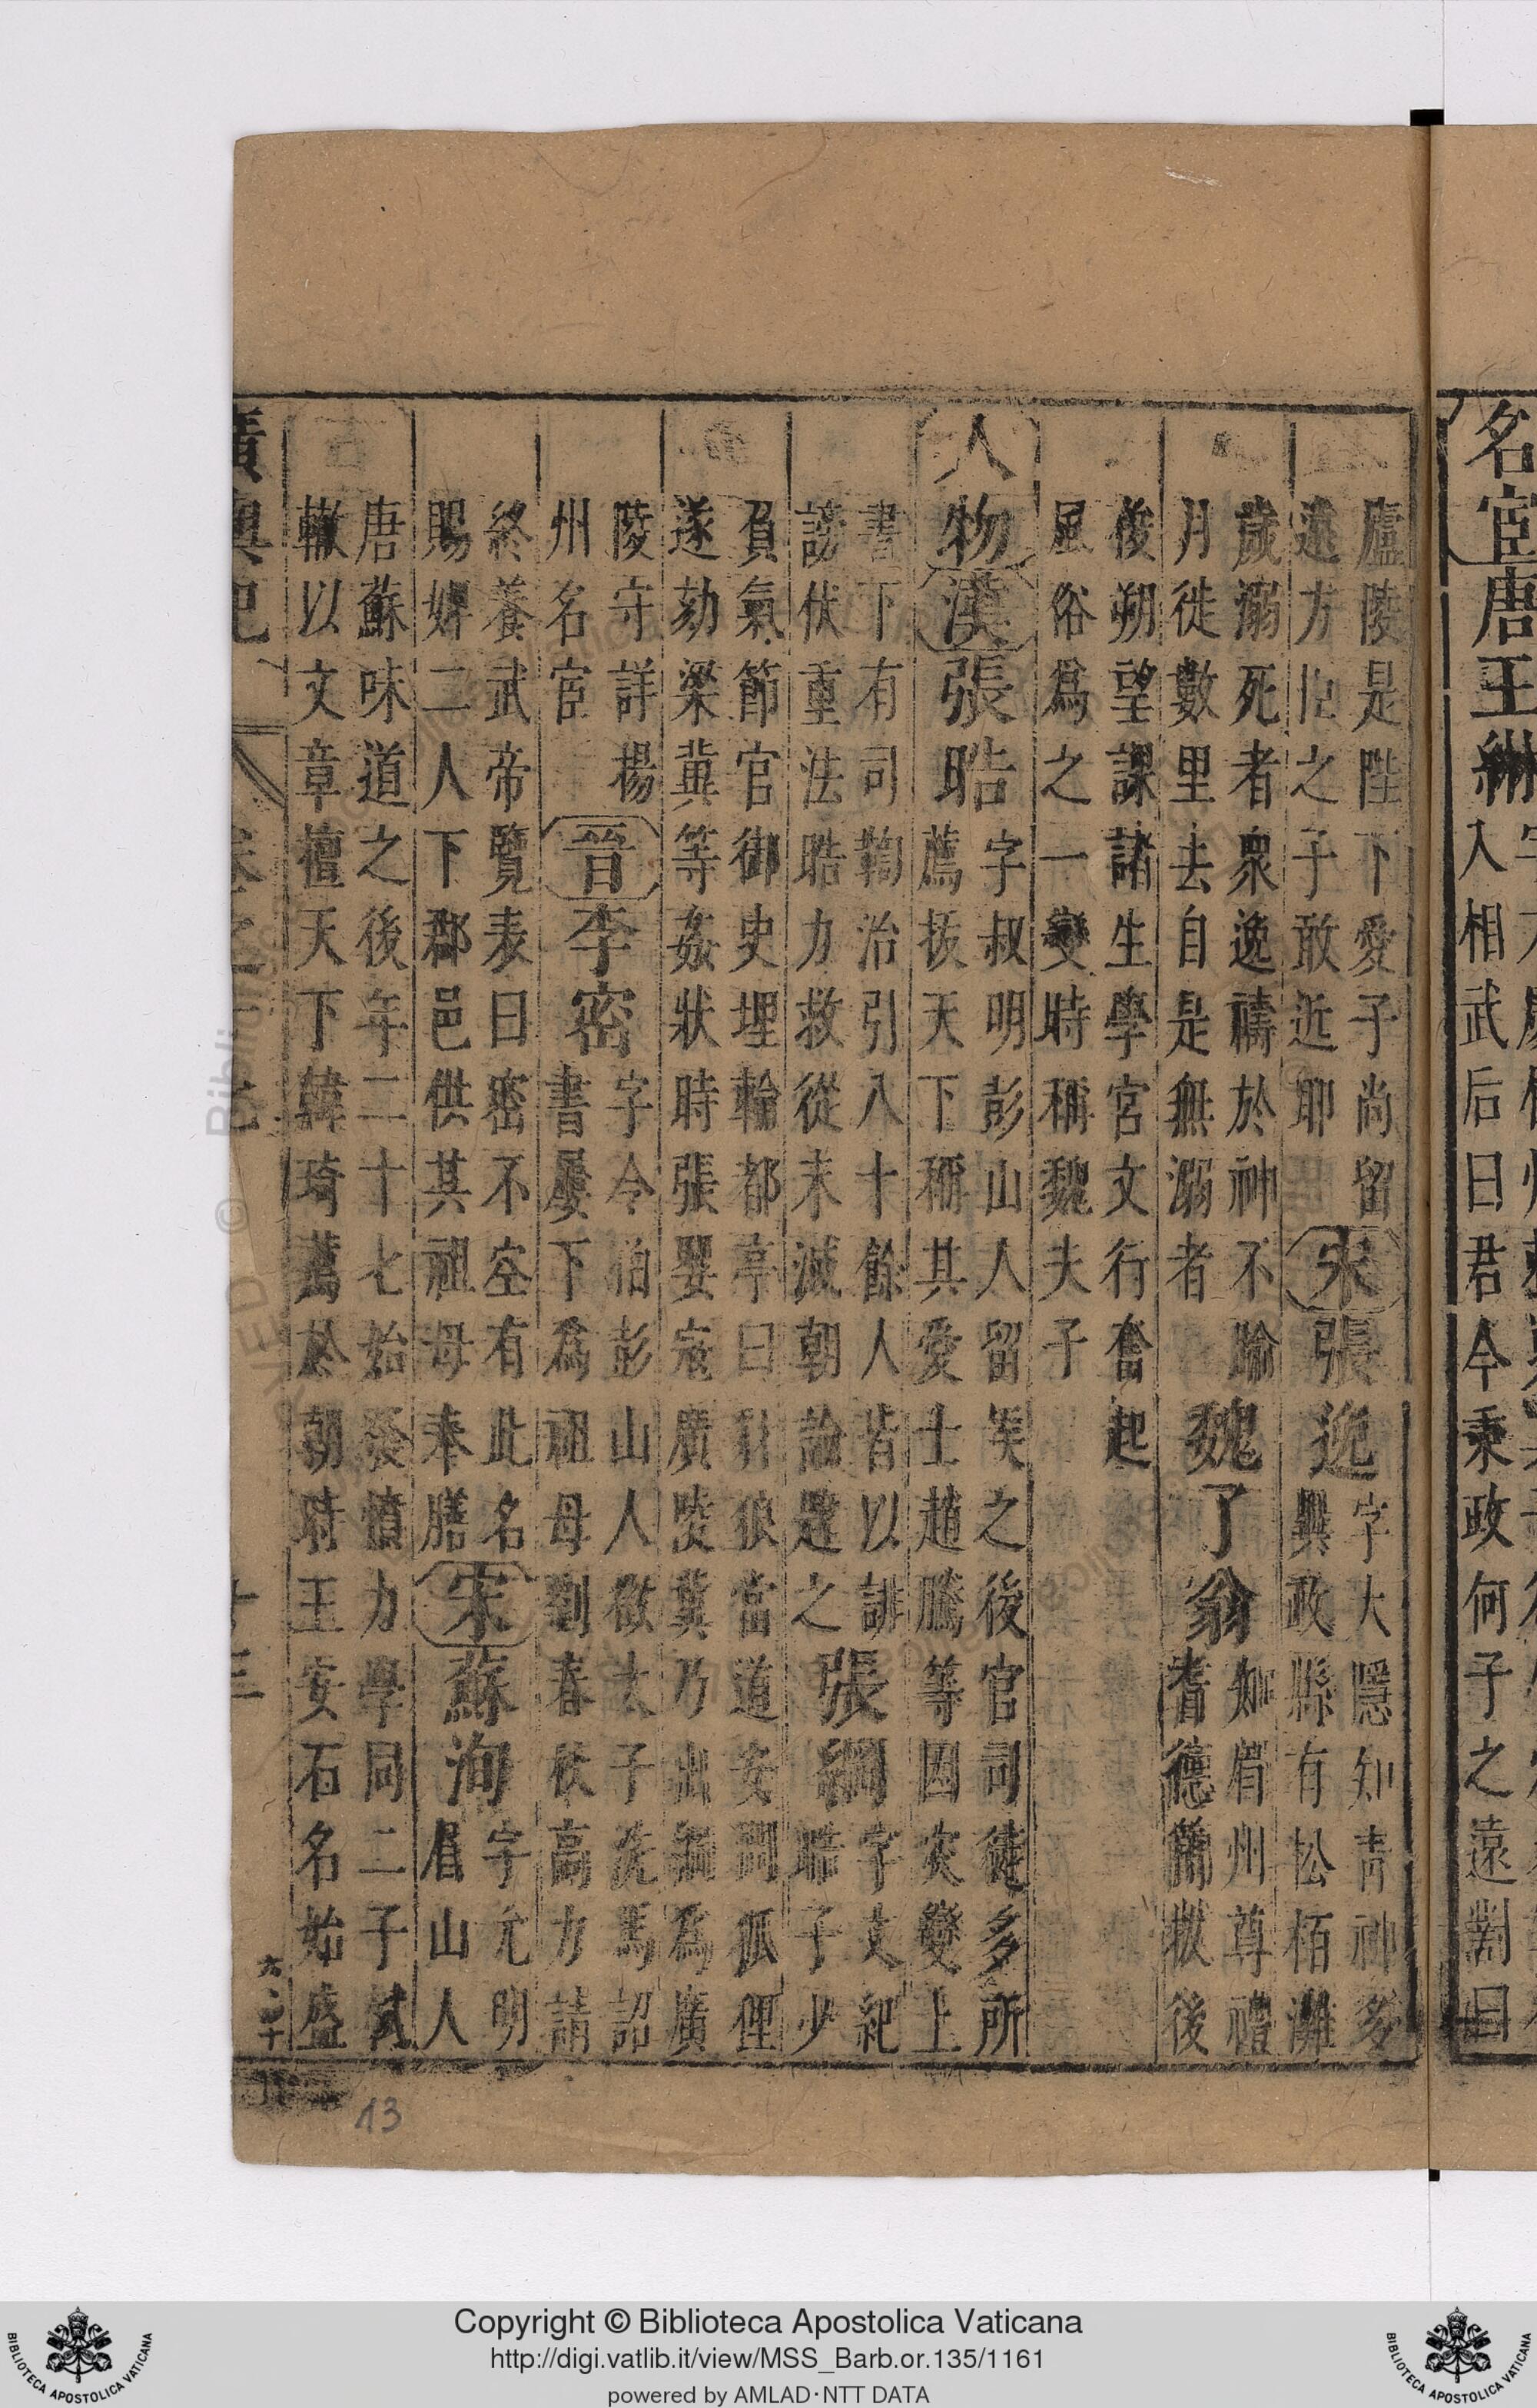 名宦唐王綝
入相武后曰君今秉政何子之遠對曰
廬陵是陛下愛子尚留
遠方臣之子敢近耶
宋張逸
字大隱知青神多
異政縣有松栢灘
歲溺死者衆逸禱於神不踰
月徙數里去自是無溺者
魏了翁
知眉州尊禮
耆德簡拔後
俊朔望課諸生學宮文行奮起
風俗爲之一變時稱魏夫子
人物漢張晧
字叔明彭山人留矦之後官司徒多所
薦拔天下稱其愛士趙騰等因灾變上
書下有司鞫治引八十餘人皆以誹
謗伏重法晧力救從末減朝論韙之
張綱
字文紀
晧子少
負氣節官御史埋輪都亭曰豺狼當道安問狐狸
遂劾梁冀等姦狀時張嬰寇廣陵冀乃出綱爲廣
陵守詳楊
州名宦
晉李密
字令伯彭山人徵太子洗馬詔
書屢下爲祖母劉春秋高力請
終養武帝覽表曰密不空有此名
賜婢二人下郡邑供其祖母奉膳
宋蘇洵
字允明
眉山人
唐蘇味道之後年二十七始發憤力學同二子軾
轍以文章擅天下韓琦薦於朝時王安石名始盛
廣輿記
十三
13
Copyright © Biblioteca Apostolica Vaticana
http://digi.vatlib.it/view/MSS_Barb.or.135/1161
powered by AMLAD･NTT DATA
BIBLIOTECA APOSTOLICA VATICANA
BIBLIOTECA APOSTOLICA VATICANA